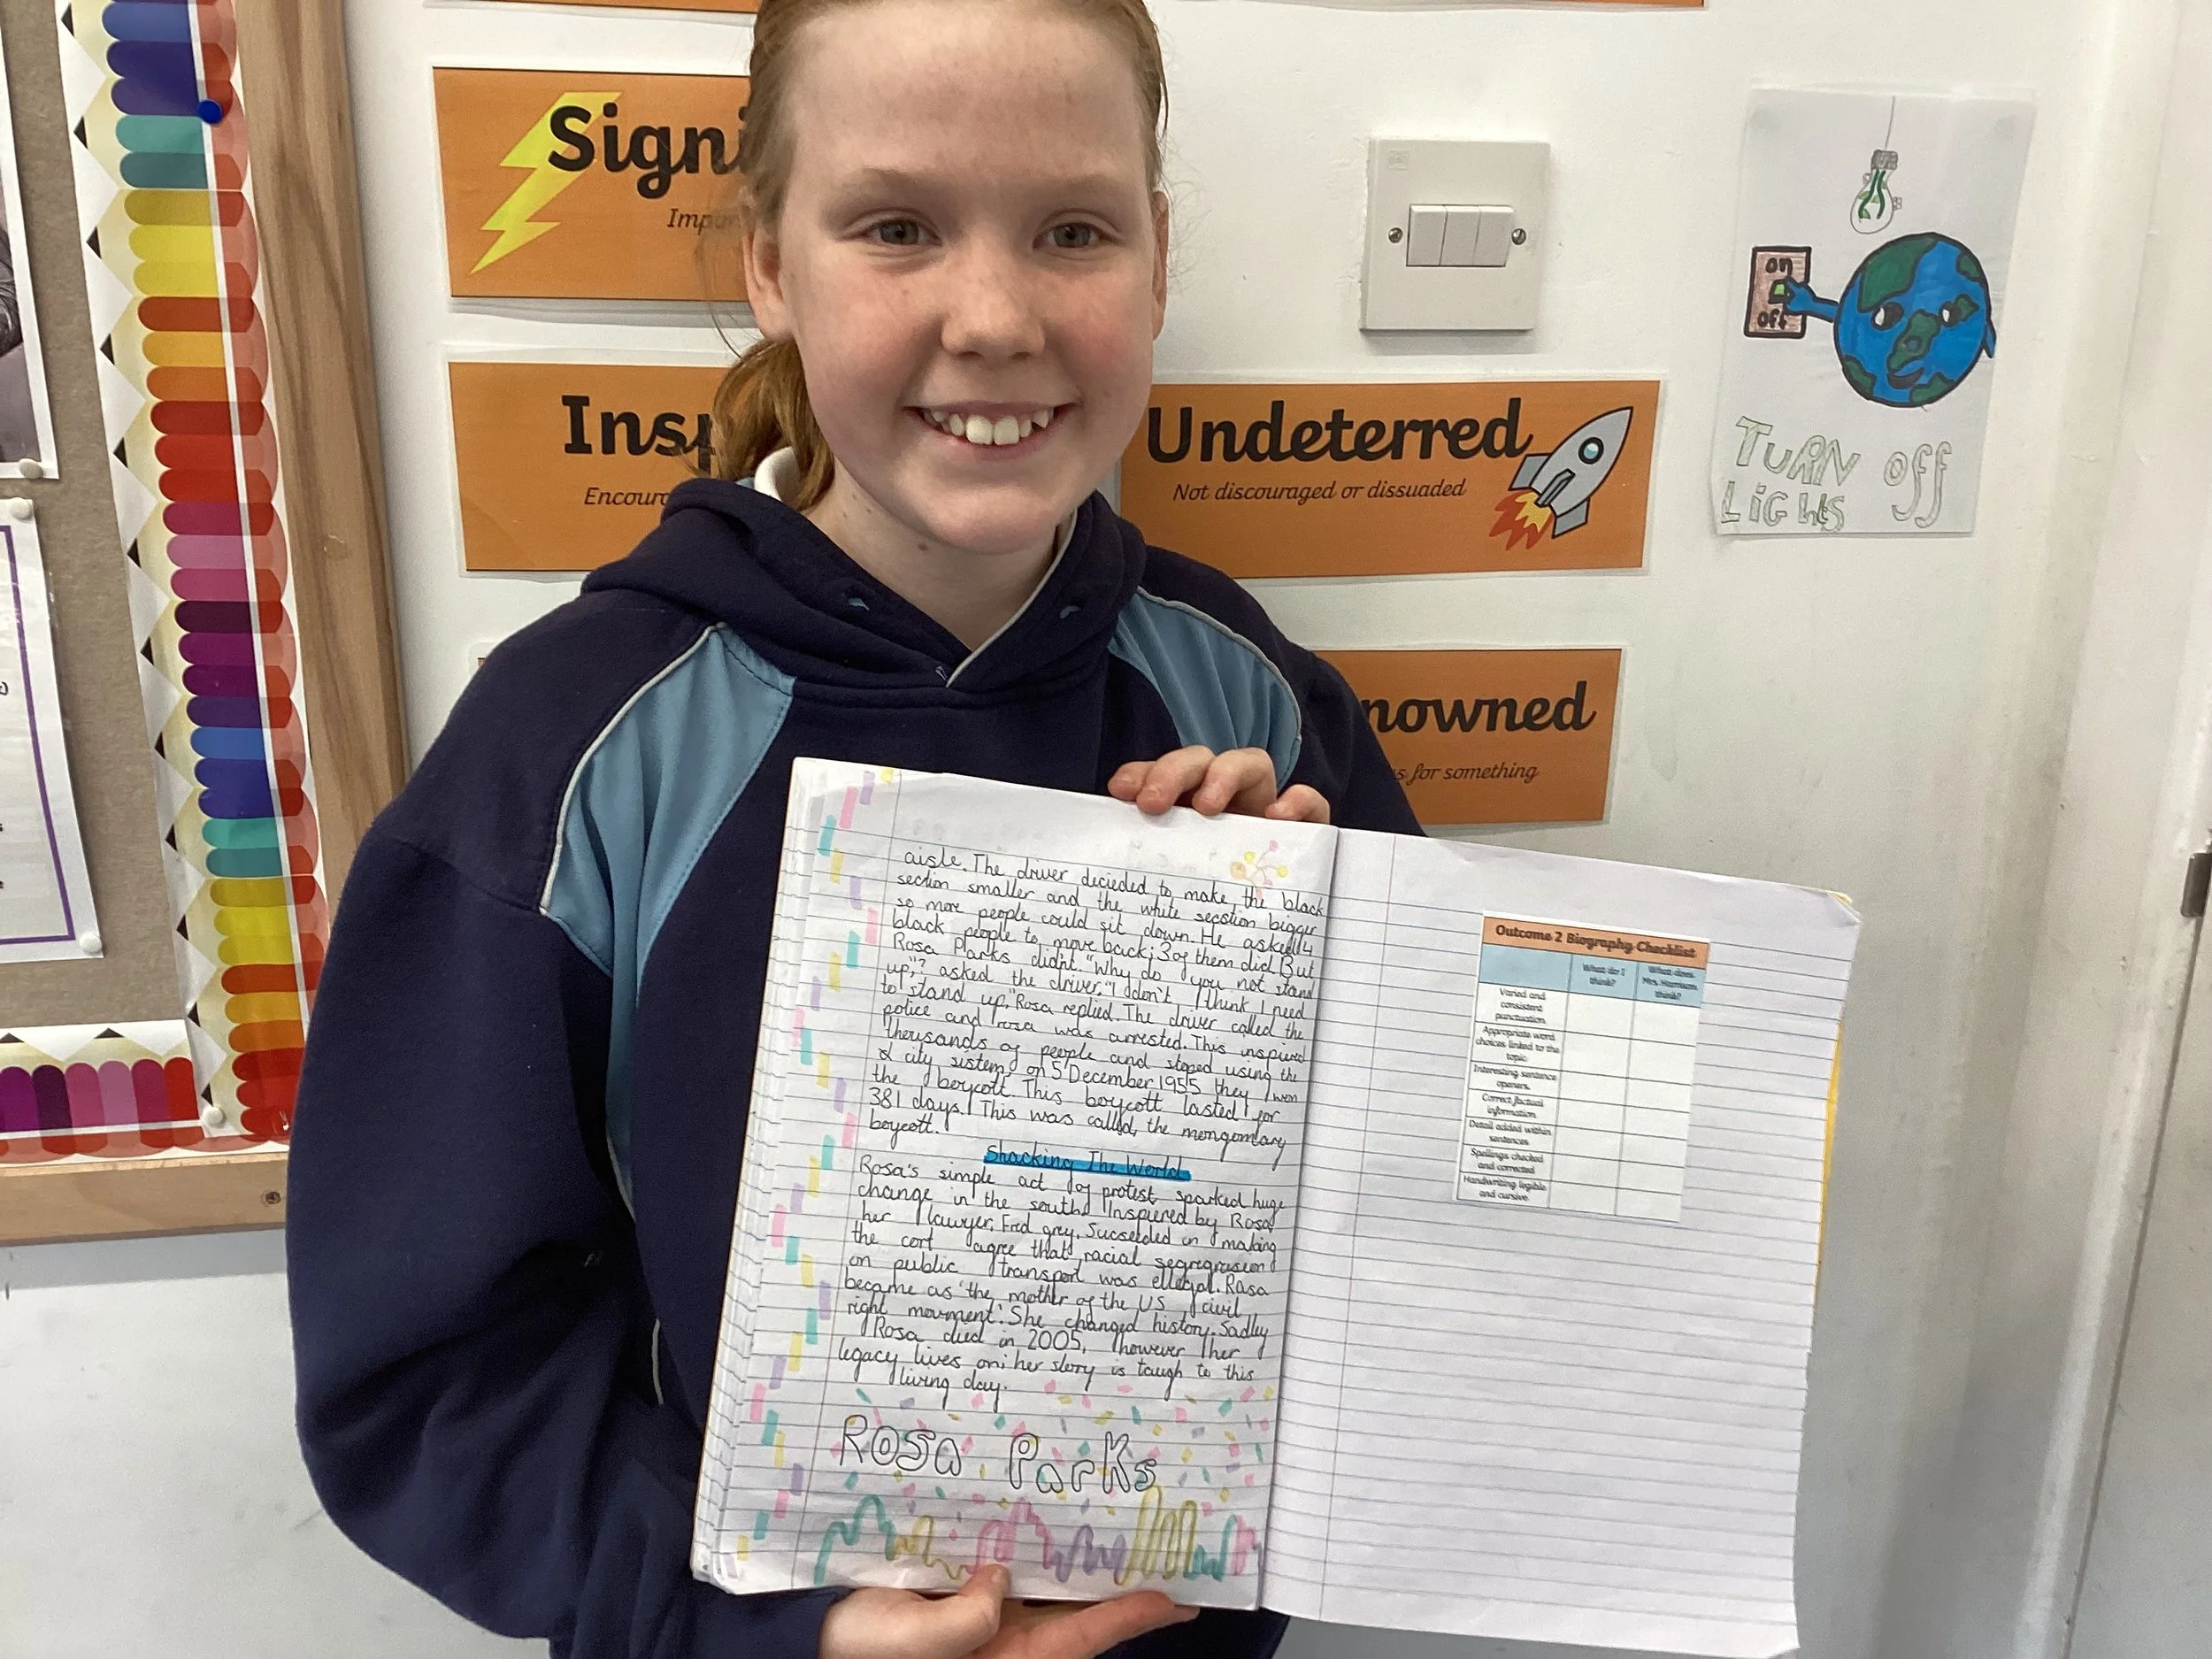 Signi
Impor
Insp
Encoura
Undeterred
Not discouraged or dissuaded
nowned
s for something
on
off
TURN Off
LiGhts
aisle. The driver decieded to make the black
section smaller and the white secstion bigger
so more people could sit down. He asked 4
black people to move back; 3 of them did. But
Rosa Parks didn't. "Why do you not stand
up,"? asked the driver. "I don't think I need
to stand up," Rosa replied. The driver called the
police and rosa was arrested. This inspired
thousands of people and stoped using the
city sistem, on 5 December 1955 they won
the boycott. This boycott lasted for
381 days. This was called, the mongomtary
boycott.
Shacking The World
Rosa's simple act of protest sparked huge
change in the south. Inspired by Rosa,
her lawyer, Fred grey. Sucseeded in making
the cort agree that racial segregrasion
on public transport was ellegal. Rosa
became as 'the mother of the US civil
right movment'. She changed history. Sadley
Rosa died in 2005, however her
legacy lives on; her story is taugh to this
living day.
Rosa Parks
Outcome 2 Biography Checklist
What do I think?
What does Mrs. Harrison think?
Varied and
consistent
punctuation.
Appropriate word
choices linked to the
topic
Interesting sentence
openers.
Correct factual
information.
Detail added within
sentences
Spellings checked
and corrected
Handwriting legible
and cursive.